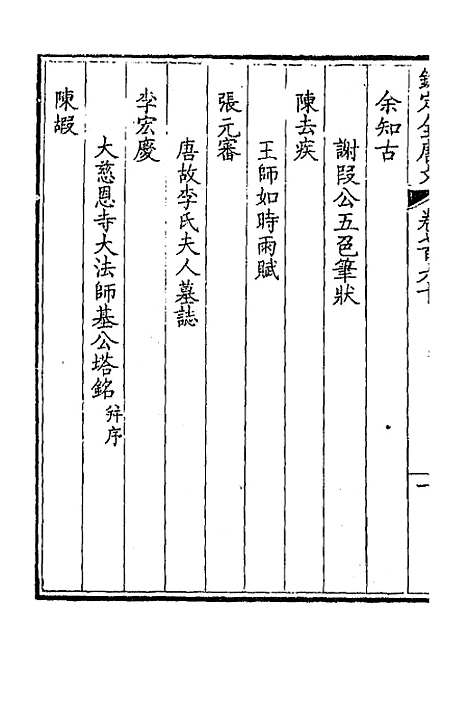 欽定全唐文 卷七百六十 一
余知古
謝段公五色筆狀
陳去疾
王師如時雨賦
張元審
唐故李氏夫人墓誌
李宏慶
大慈恩寺大法師基公塔銘 并序
陳嘏